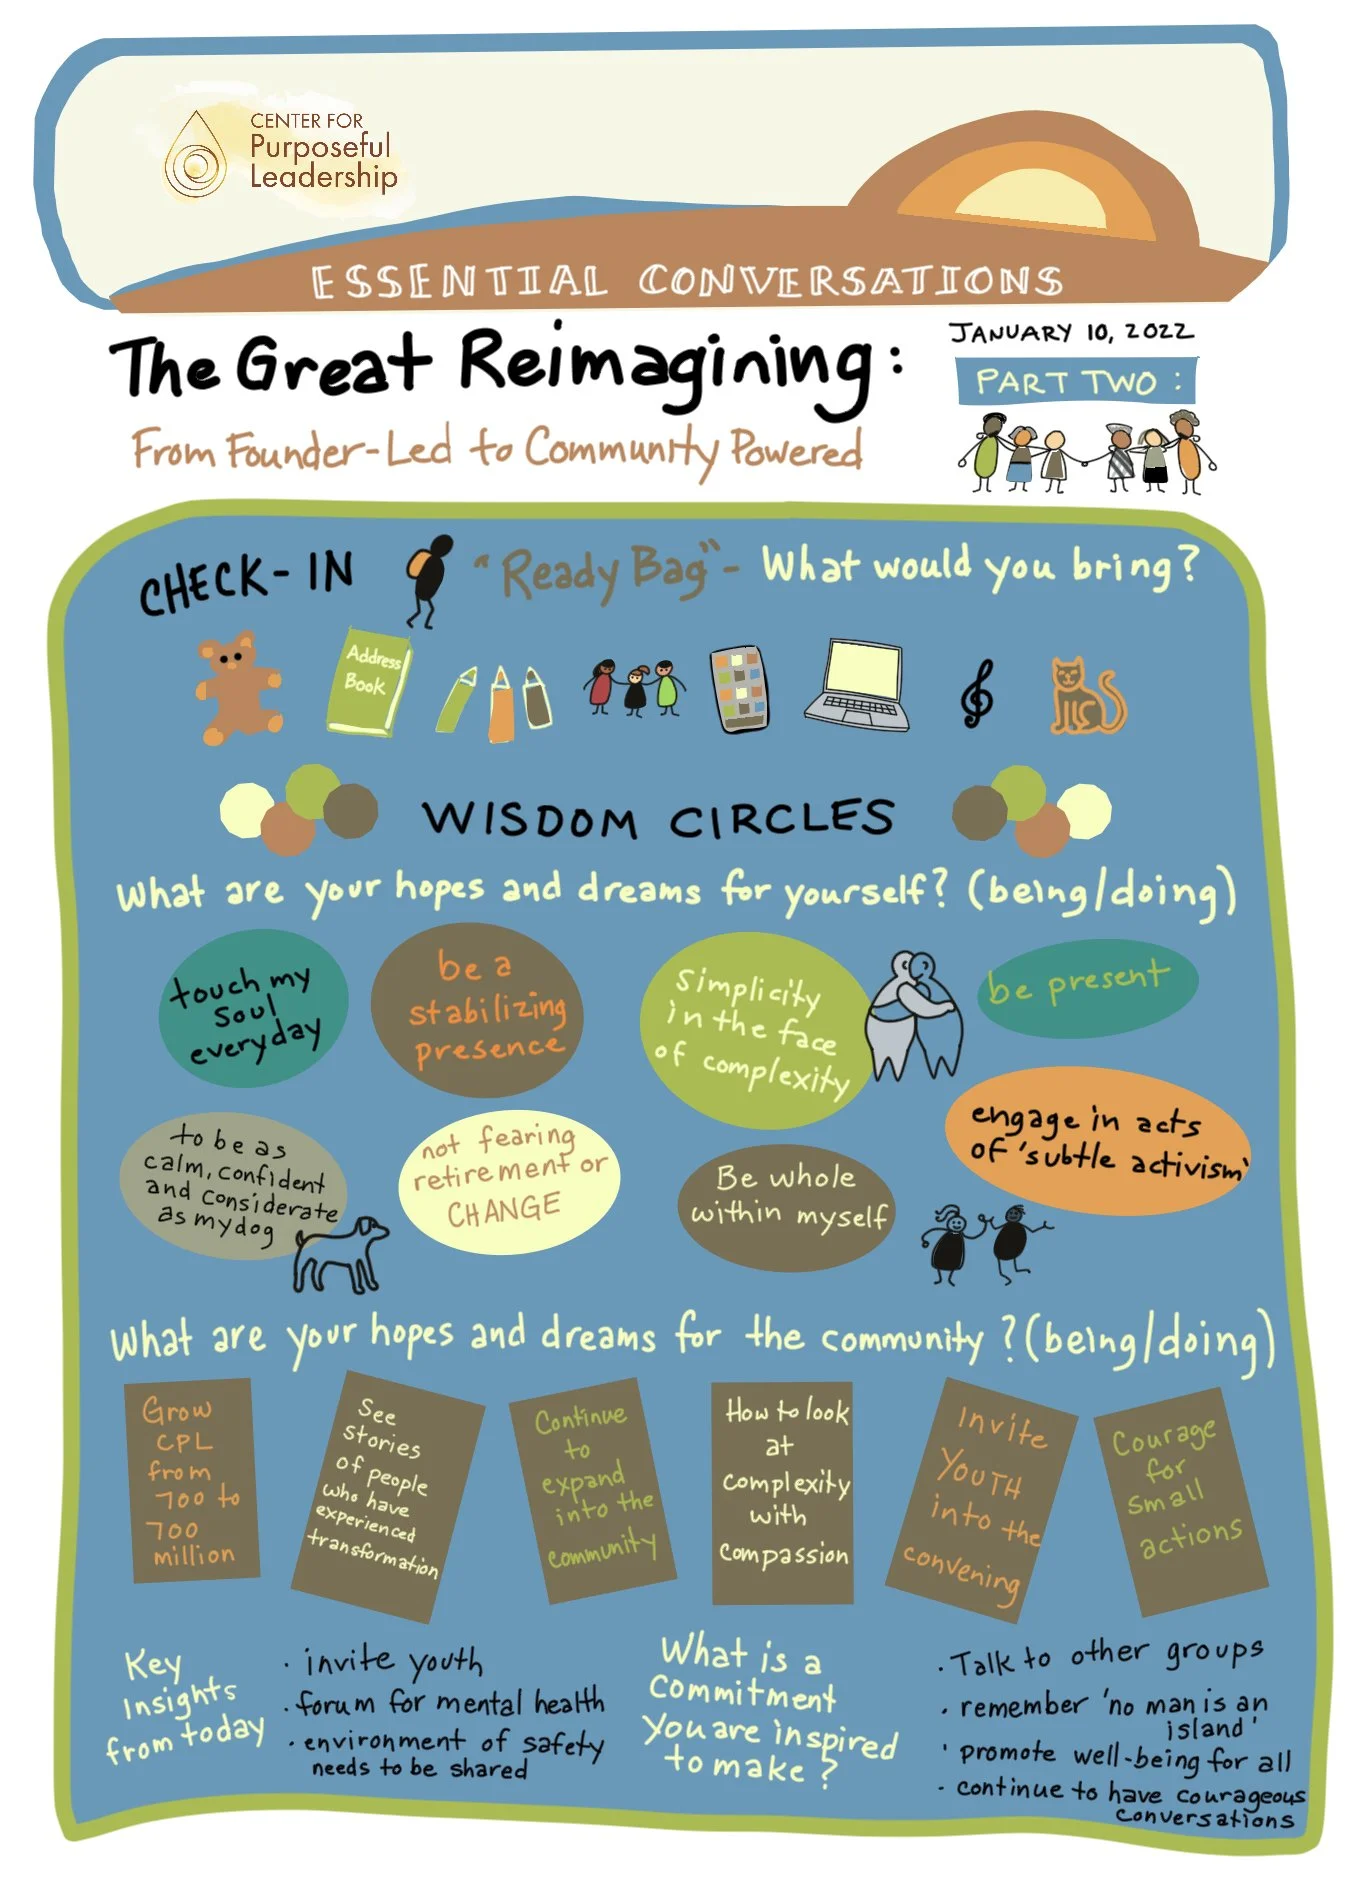 CENTER FOR
Purposeful
Leadership
ESSENTIAL CONVERSATIONS
The Great Reimagining:
From Founder-Led to Community Powered
JANUARY 10, 2022
PART TWO:
CHECK-IN
"Ready Bag"- What would you bring?
Address
Book
WISDOM CIRCLES
What are your hopes and dreams for yourself? (being/doing)
touch my
soul
everyday
be a
stabilizing
presence
simplicity
in the face
of complexity
be present
to be as
calm, confident
and considerate
as my dog
not fearing
retirement or
CHANGE
Be whole
within myself
engage in acts
of 'subtle activism'
What are your hopes and dreams for the community? (being/doing)
Grow
CPL
from
700 to
700
million
See
Stories
of people
who have
experienced
transformation
Continue
to
expand
into the
community
How to look
at
complexity
with
compassion
Invite
YOUTH
into the
convening
Courage
for
small
actions
Key
Insights
from today
· invite youth
· forum for mental health
· environment of safety
needs to be shared
What is a
commitment
you are inspired
to make?
· Talk to other groups
· remember 'no man is an
island'
' promote well-being for all
· continue to have courageous
conversations